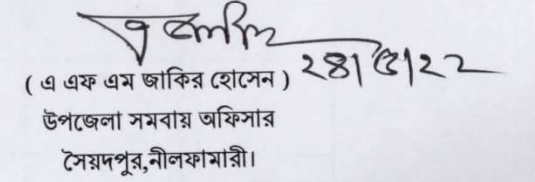 ২৪|৫|২২
( এ এফ এম জাকির হোসেন )
উপজেলা সমবায় অফিসার
সৈয়দপুর,নীলফামারী।